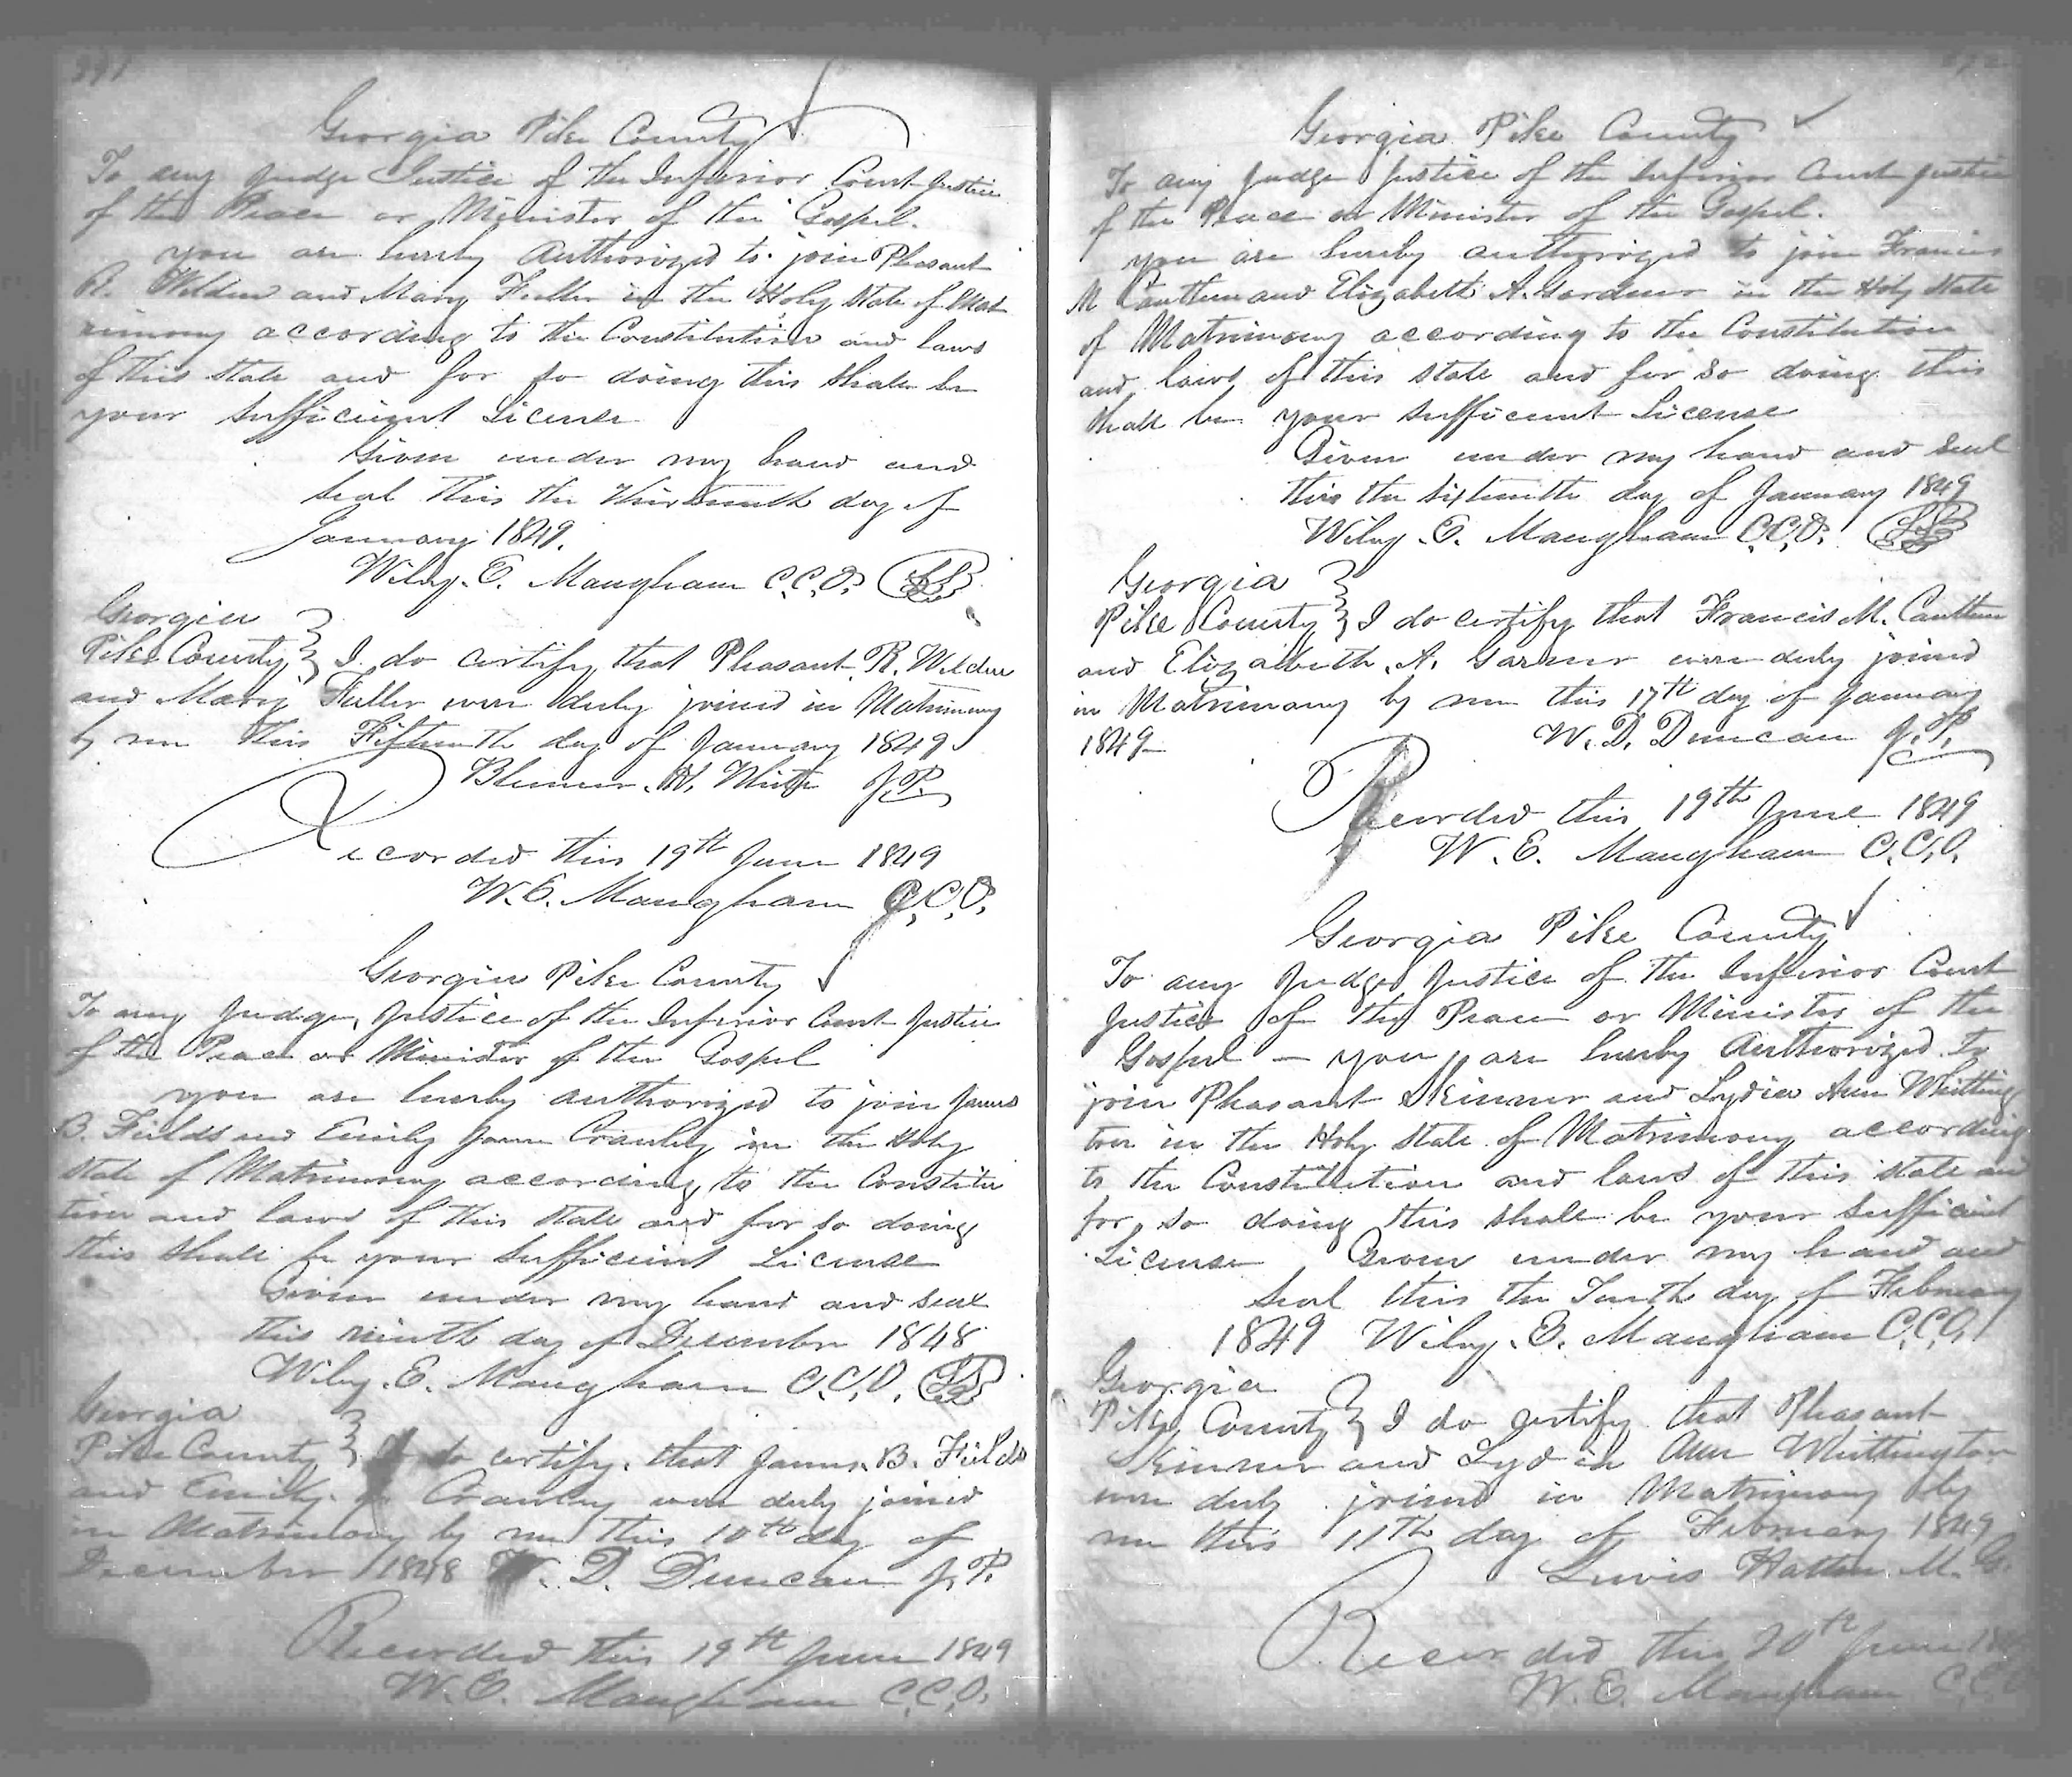 391
Georgia Pike County
To any Judge Justice of the Inferior Court Justice
of the Peace or Minister of the Gospel.
you are hereby Authorized to join Pleasant
R. Wilder and Mary Fuller in the Holy State of Mat
rimony according to the Constitution and laws
of this State and for so doing this Shall be
your Sufficient License
Given under my hand and
Seal this the Thirteenth day of
January 1849.
Wiley. E. Maugham C.C.O. LS
Georgia
Pike County } I do certify that Pleasant. R. Wilder
and Mary Fuller were duly joined in Matrimony
by me this Fifteenth day of January 1849
H. White J.P.
Recorded this 19th June 1849
W.E. Maugham C.C.O.
Georgia Pike County
To any Judge, Justice of the Inferior Court Justice
of the Peace or Minister of the Gospel
you are hereby authorized to join James
B. Fields and Emily Jane Crawley in the Holy
State of Matrimony according to the Constitu
tion and laws of this State and for so doing
this Shall be your Sufficient License
Given under my hand and seal
this ninth day of December 1848
Wiley. E. Maugham C.C.O. LS
Georgia
Pike County } I do certify. that James. B. Fields
and Emily. J. Crawley were duly joined
in Matrimony by me this 10th day of
December 1848 W. D. Duncan J.P.
Recorded this 19th June 1849
W.E. Maugham C.C.O.
Georgia Pike County
To any Judge Justice of the Inferior Court Justice
of the Peace or Minister of the Gospel.
you are hereby authorized to join Francis
M Cauthen and Elizabeth A. Gardner in the Holy State
of Matrimony according to the Constitution
and laws of this State and for so doing this
Shall be your Sufficient License
Given under my hand and seal
this the Sixteenth day of January 1849
Wiley. E. Maugham C.C.O. LS
Georgia
Pike County } I do certify that Francis M. Cauthen
and Elizabeth. A. Garner were duly joined
in Matrimony by me this 17th day of January
1849 W. D. Duncan J.P.
Recorded this 19th June 1849
W.E. Maugham C.C.O.
Georgia Pike County
To any Judge Justice of the Inferior Court
Justice of the Peace or Minister of the
Gospel — you are hereby Authorized to
join Pleasant Skinner and Lydia Ann Whitting
ton in the Holy State of Matrimony according
to the Constitution and laws of this State and
for so doing this shall be your Sufficient
License Given under my hand and
Seal this the Tenth day of February
1849 Wiley. E. Maugham C.C.O.
Georgia
Pike County } I do certify that Pleasant
Skinner and Lydia Ann Whittington
were duly joined in Matrimony by
me this 11th day of February 1849
Lewis Hatten M.G.
Recorded this 20th June
W.E. Maugham C.C.